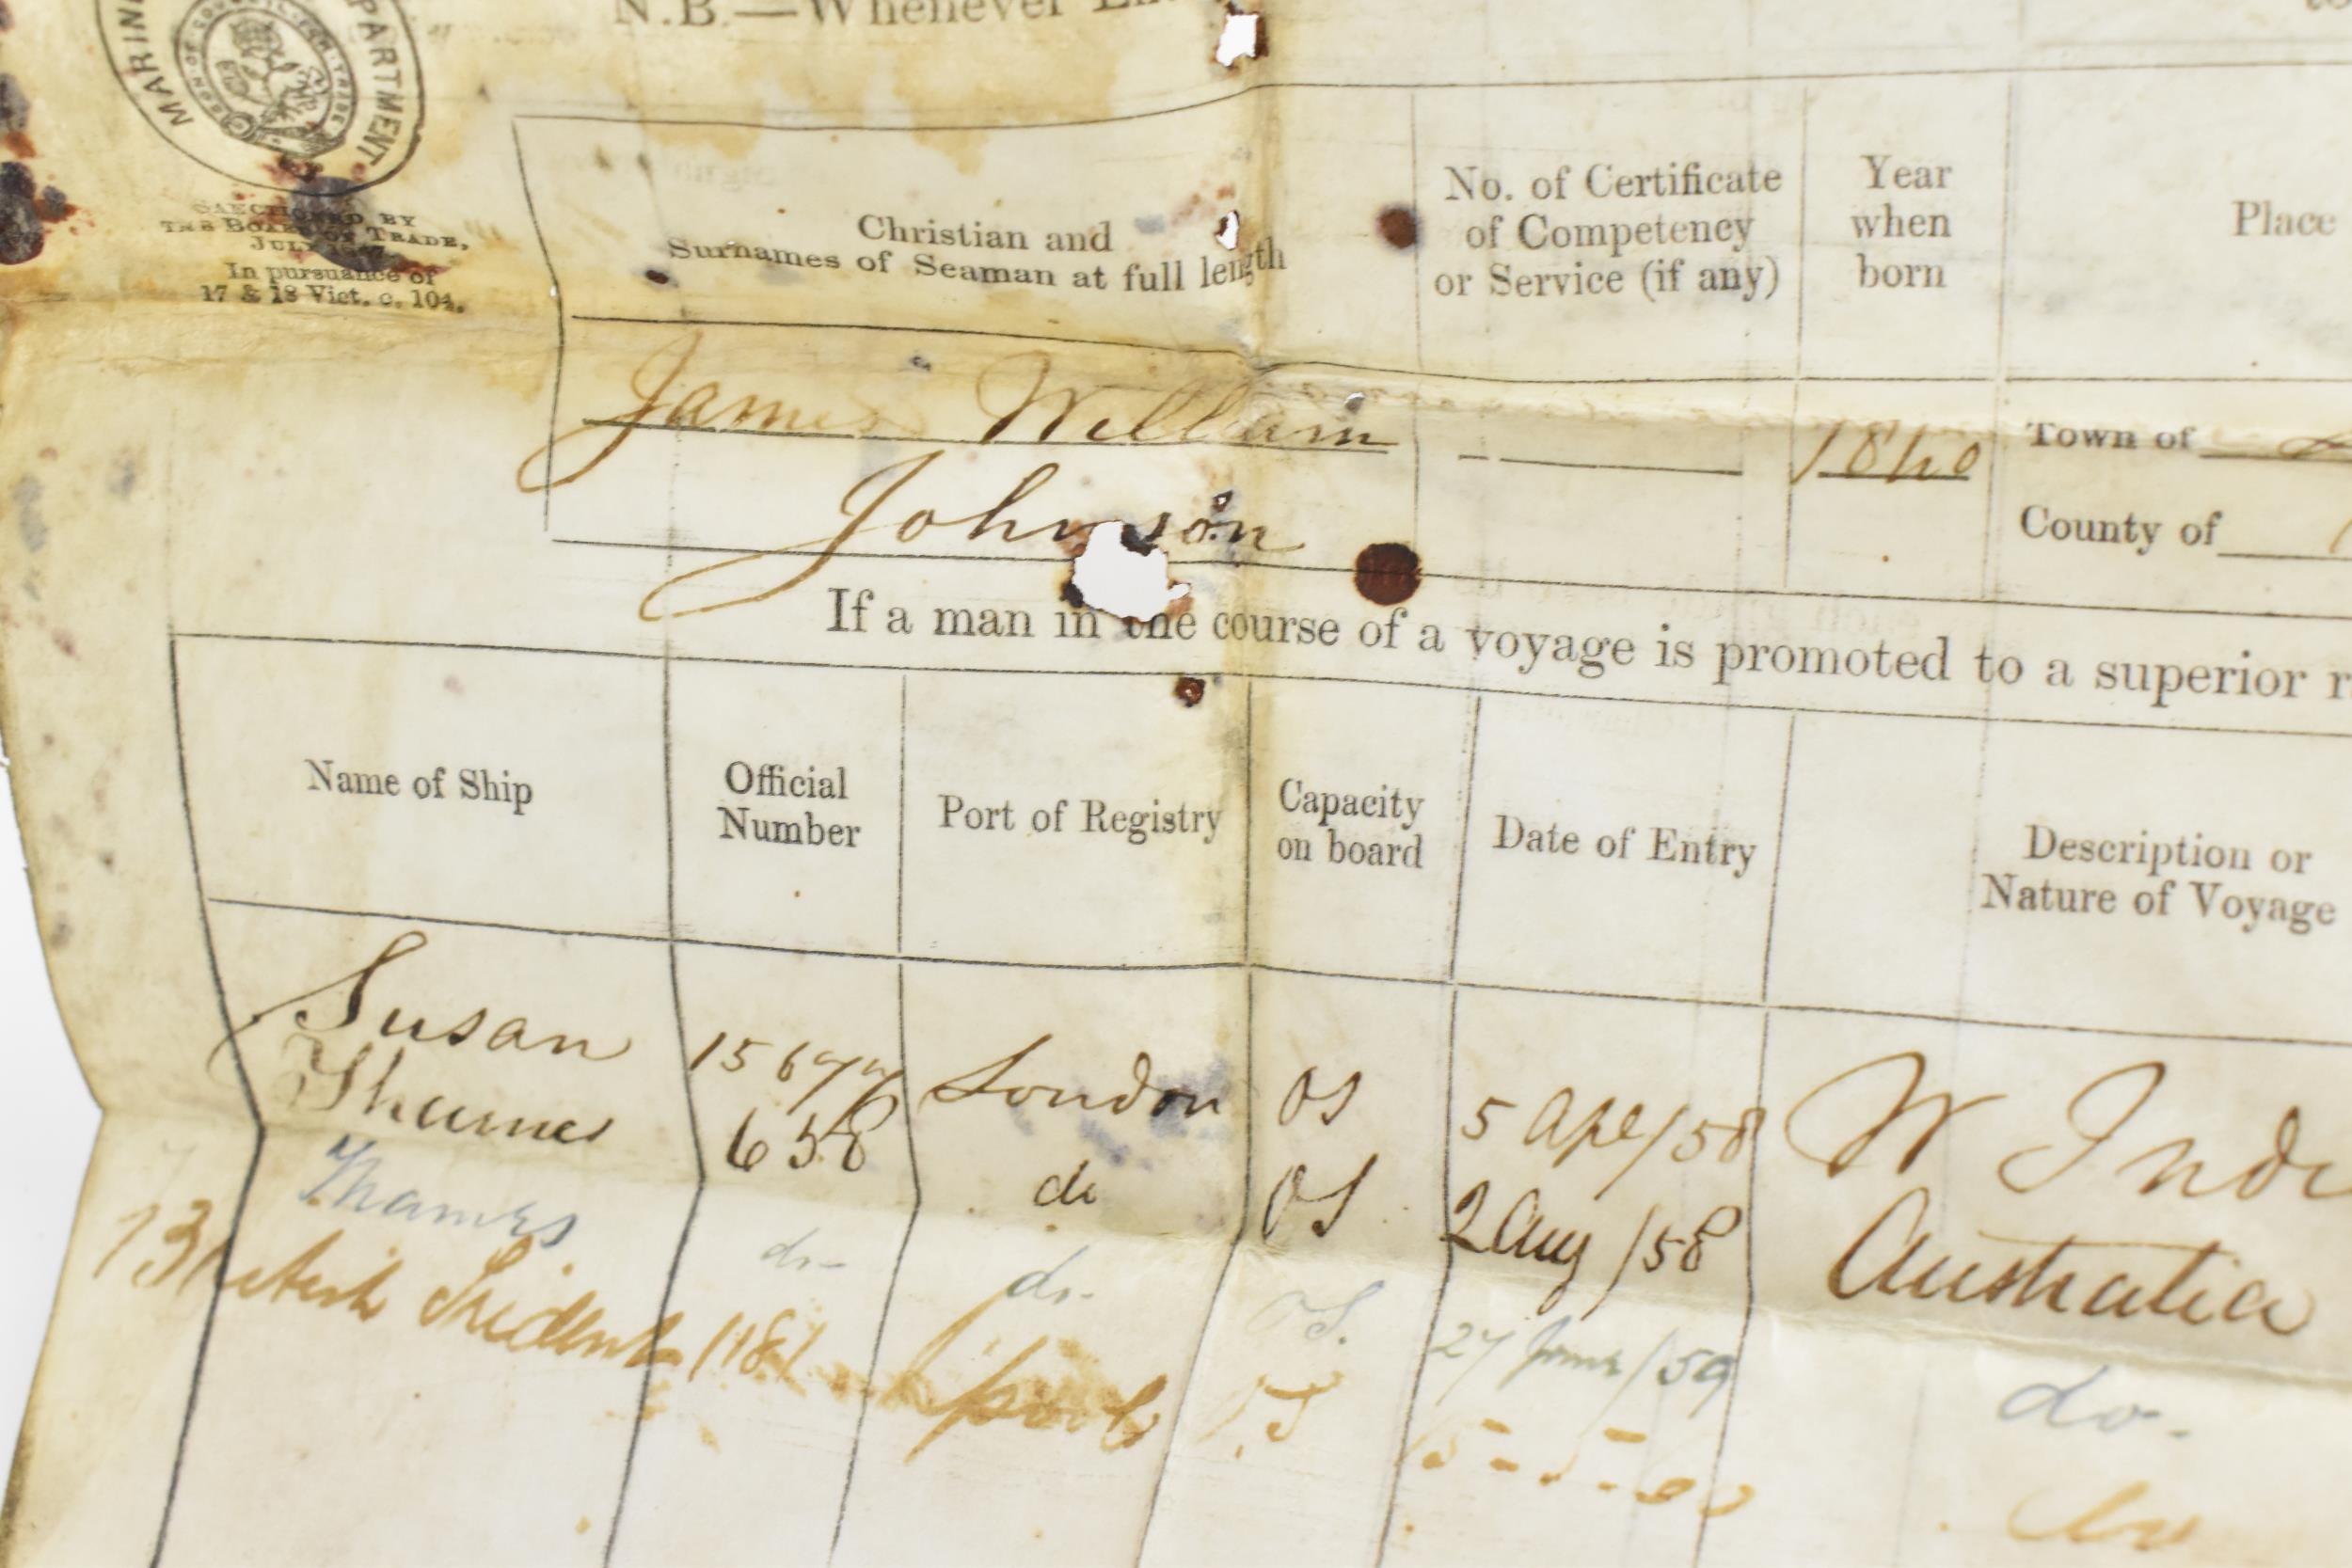 N.B.—Whenever
MARINE DEPARTMENT
SANCTIONED BY
THE BOARD OF TRADE,
JULY
In pursuance of
17 & 18 Vict. c. 104.
Christian and
Surnames of Seaman at full length
No. of Certificate
of Competency
or Service (if any)
Year
when
born
Place
James William
Johnson
1840
Town of
County of
If a man in the course of a voyage is promoted to a superior r
Name of Ship
Official
Number
Port of Registry
Capacity
on board
Date of Entry
Description or
Nature of Voyage
Susan London OS 5 Apl/58 W Indi
Thames 658 do OS 2 Aug/58 Australia
Thames do- do- OS. 27 June/59 do-
British Trident 1181 L'pool